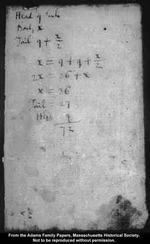 Head 9
Body x
Tail 9 + x/2
x = 9 + 9 + x/2
2x = 36 + x
x = 36
Tail = 27
72
From the Adams Family Papers, Massachusetts Historical Society.
Not to be reproduced without permission.